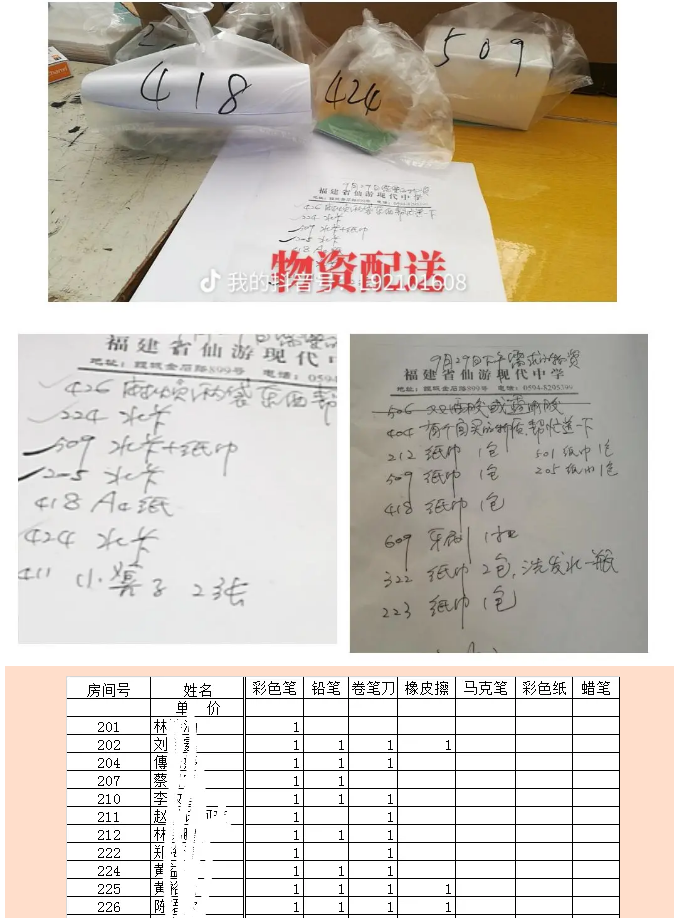 418
424
509
9月29日
福建省仙游现代中学
224 水卡
509 水卡+纸巾
205 水卡
418 A4纸
物资配送
我的抖音号：192101608
福建省仙游现代中学
899号 电话：0594
426
224 水卡
509 水卡+纸巾
205 水卡
418 A4纸
424 水卡
411 小凳子 2张
9月29日下午需求的物资
福建省仙游现代中学
地址：鲤城金石路899号 电话：0594-8295399
506 双面胶或
404 有个自买的 帮忙送一下
212 纸巾 1包 501 纸巾 1包
509 纸巾 1包 205 纸巾 1包
418 纸巾 1包
609 牙刷 1把
322 纸巾 2包，洗发水一瓶
223 纸巾 1包
房间号 姓名 彩色笔 铅笔 卷笔刀 橡皮擦 马克笔 彩色纸 蜡笔
单 价
201 林 1
202 刘 1 1 1 1
204 傅 1 1 1
207 蔡 1 1
210 李 1 1 1
211 赵 1 1
212 林 1 1 1
222 郑 1 1
224 黄 1 1 1
225 黄 1 1 1 1
226 陈 1 1 1 1